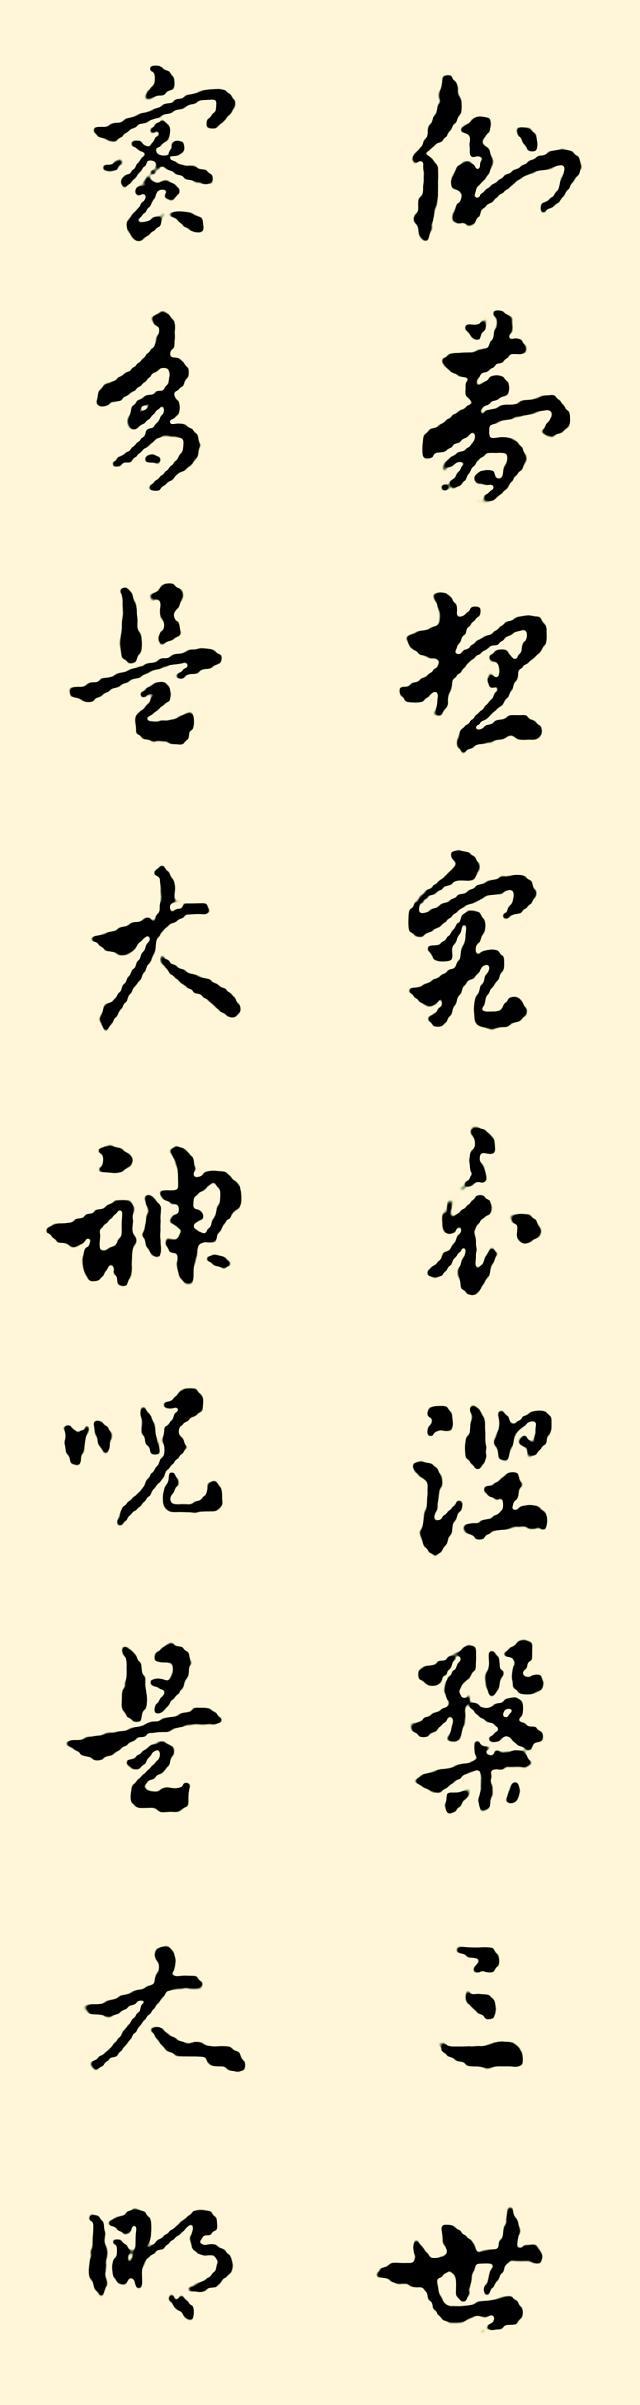 倒夢想究竟涅槃三世
蜜多是大神呪是大明